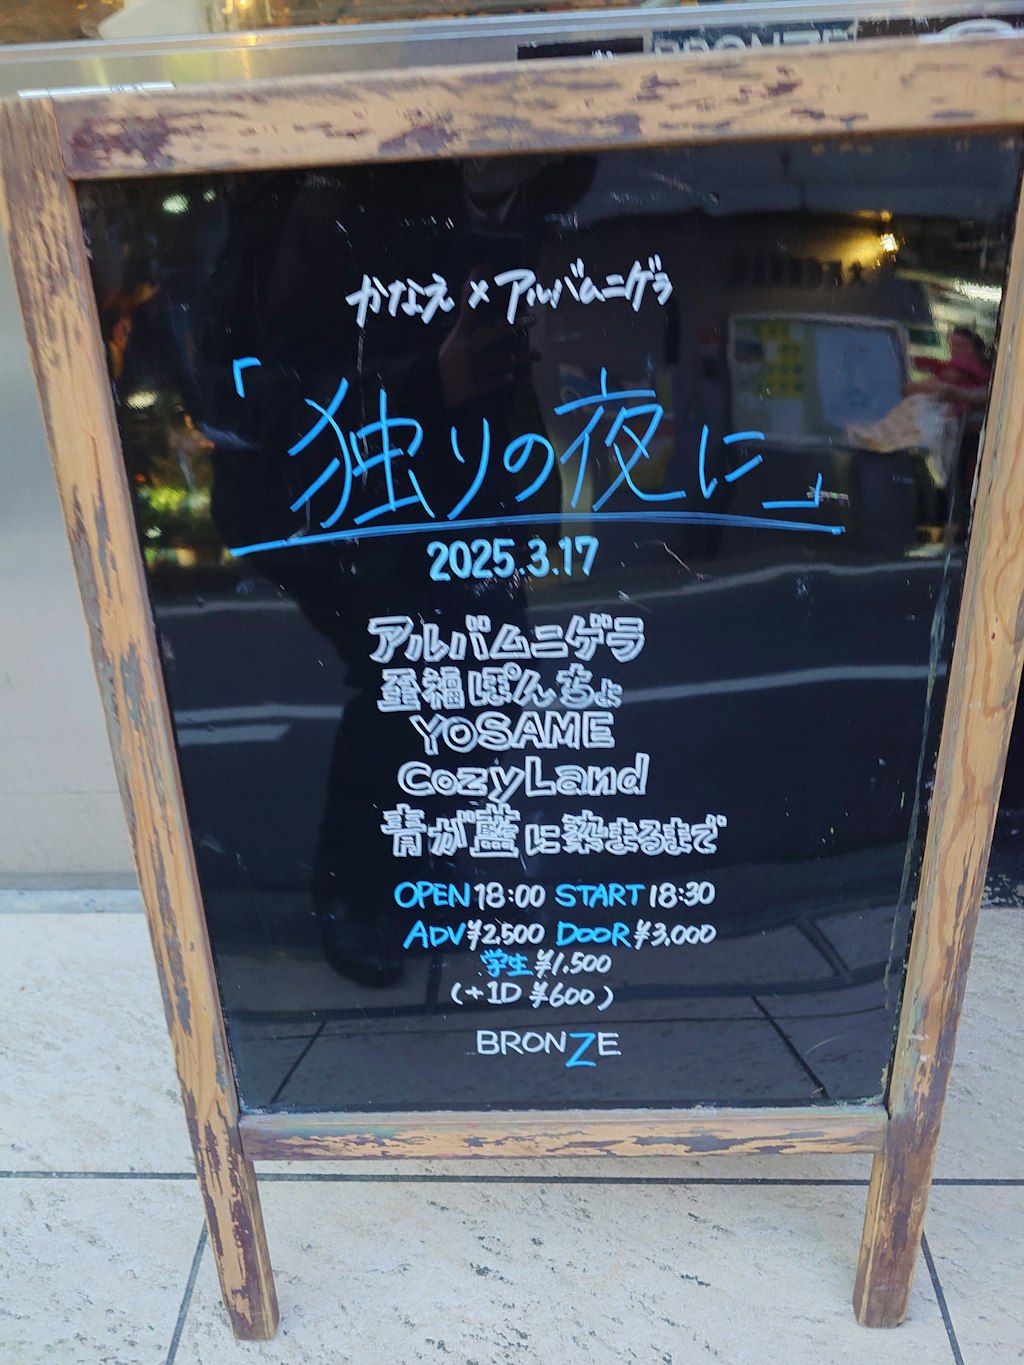 BRONZE
かなえ × アルバムニゲラ
「独りの夜に」
2025.3.17
アルバムニゲラ
至福ぽんちょ
YOSAME
CozyLand
青が藍に染まるまで
OPEN 18:00 START 18:30
ADV ¥2,500 DOOR ¥3,000
学生 ¥1,500
(+1D ¥600)
BRONZE